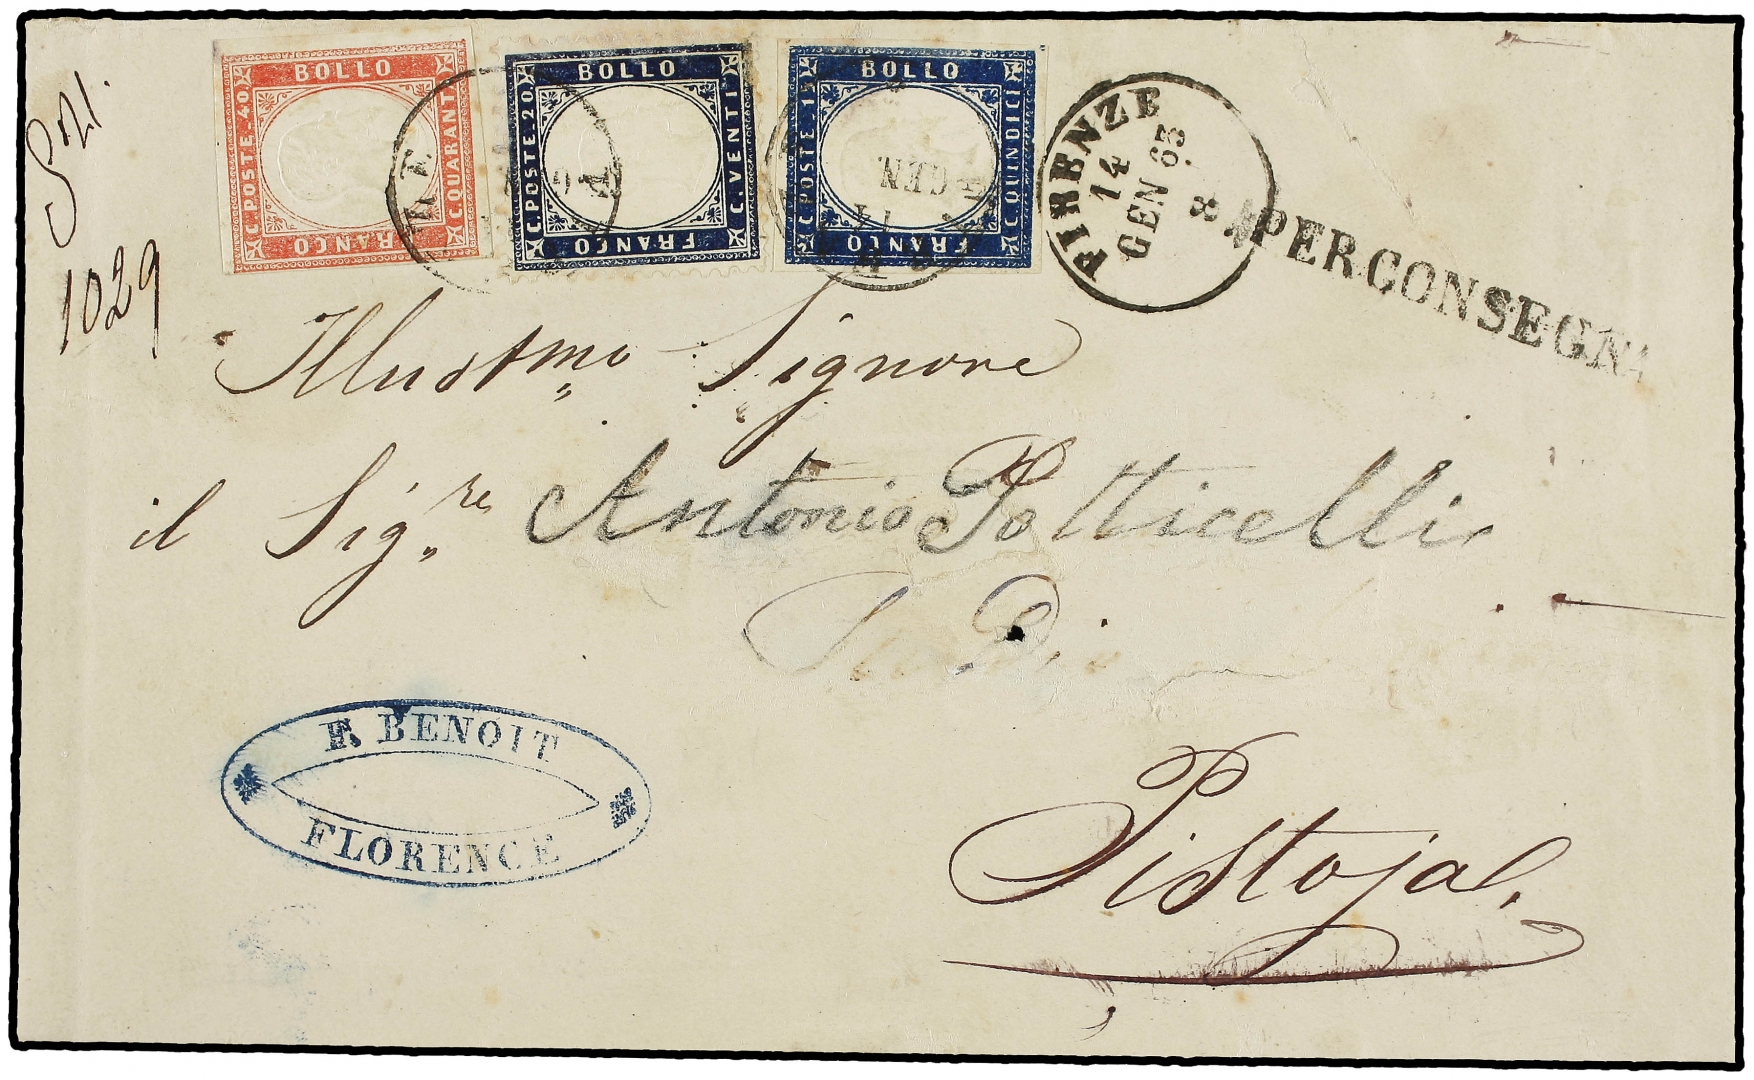 1029
BOLLO
C. POSTE. 40
C. QUARANT
FRANCO
BOLLO
C. POSTE. 20
C. VENTI
FRANCO
BOLLO
C. POSTE. 15
C. QUINDICI
FRANCO
GEN
14
FIRENZE
14
GEN 63
8
PER CONSEGNA
Illustmo Signore
il Sigre Antonio Potticelli
Pistoja
F. BENOIT
FLORENCE